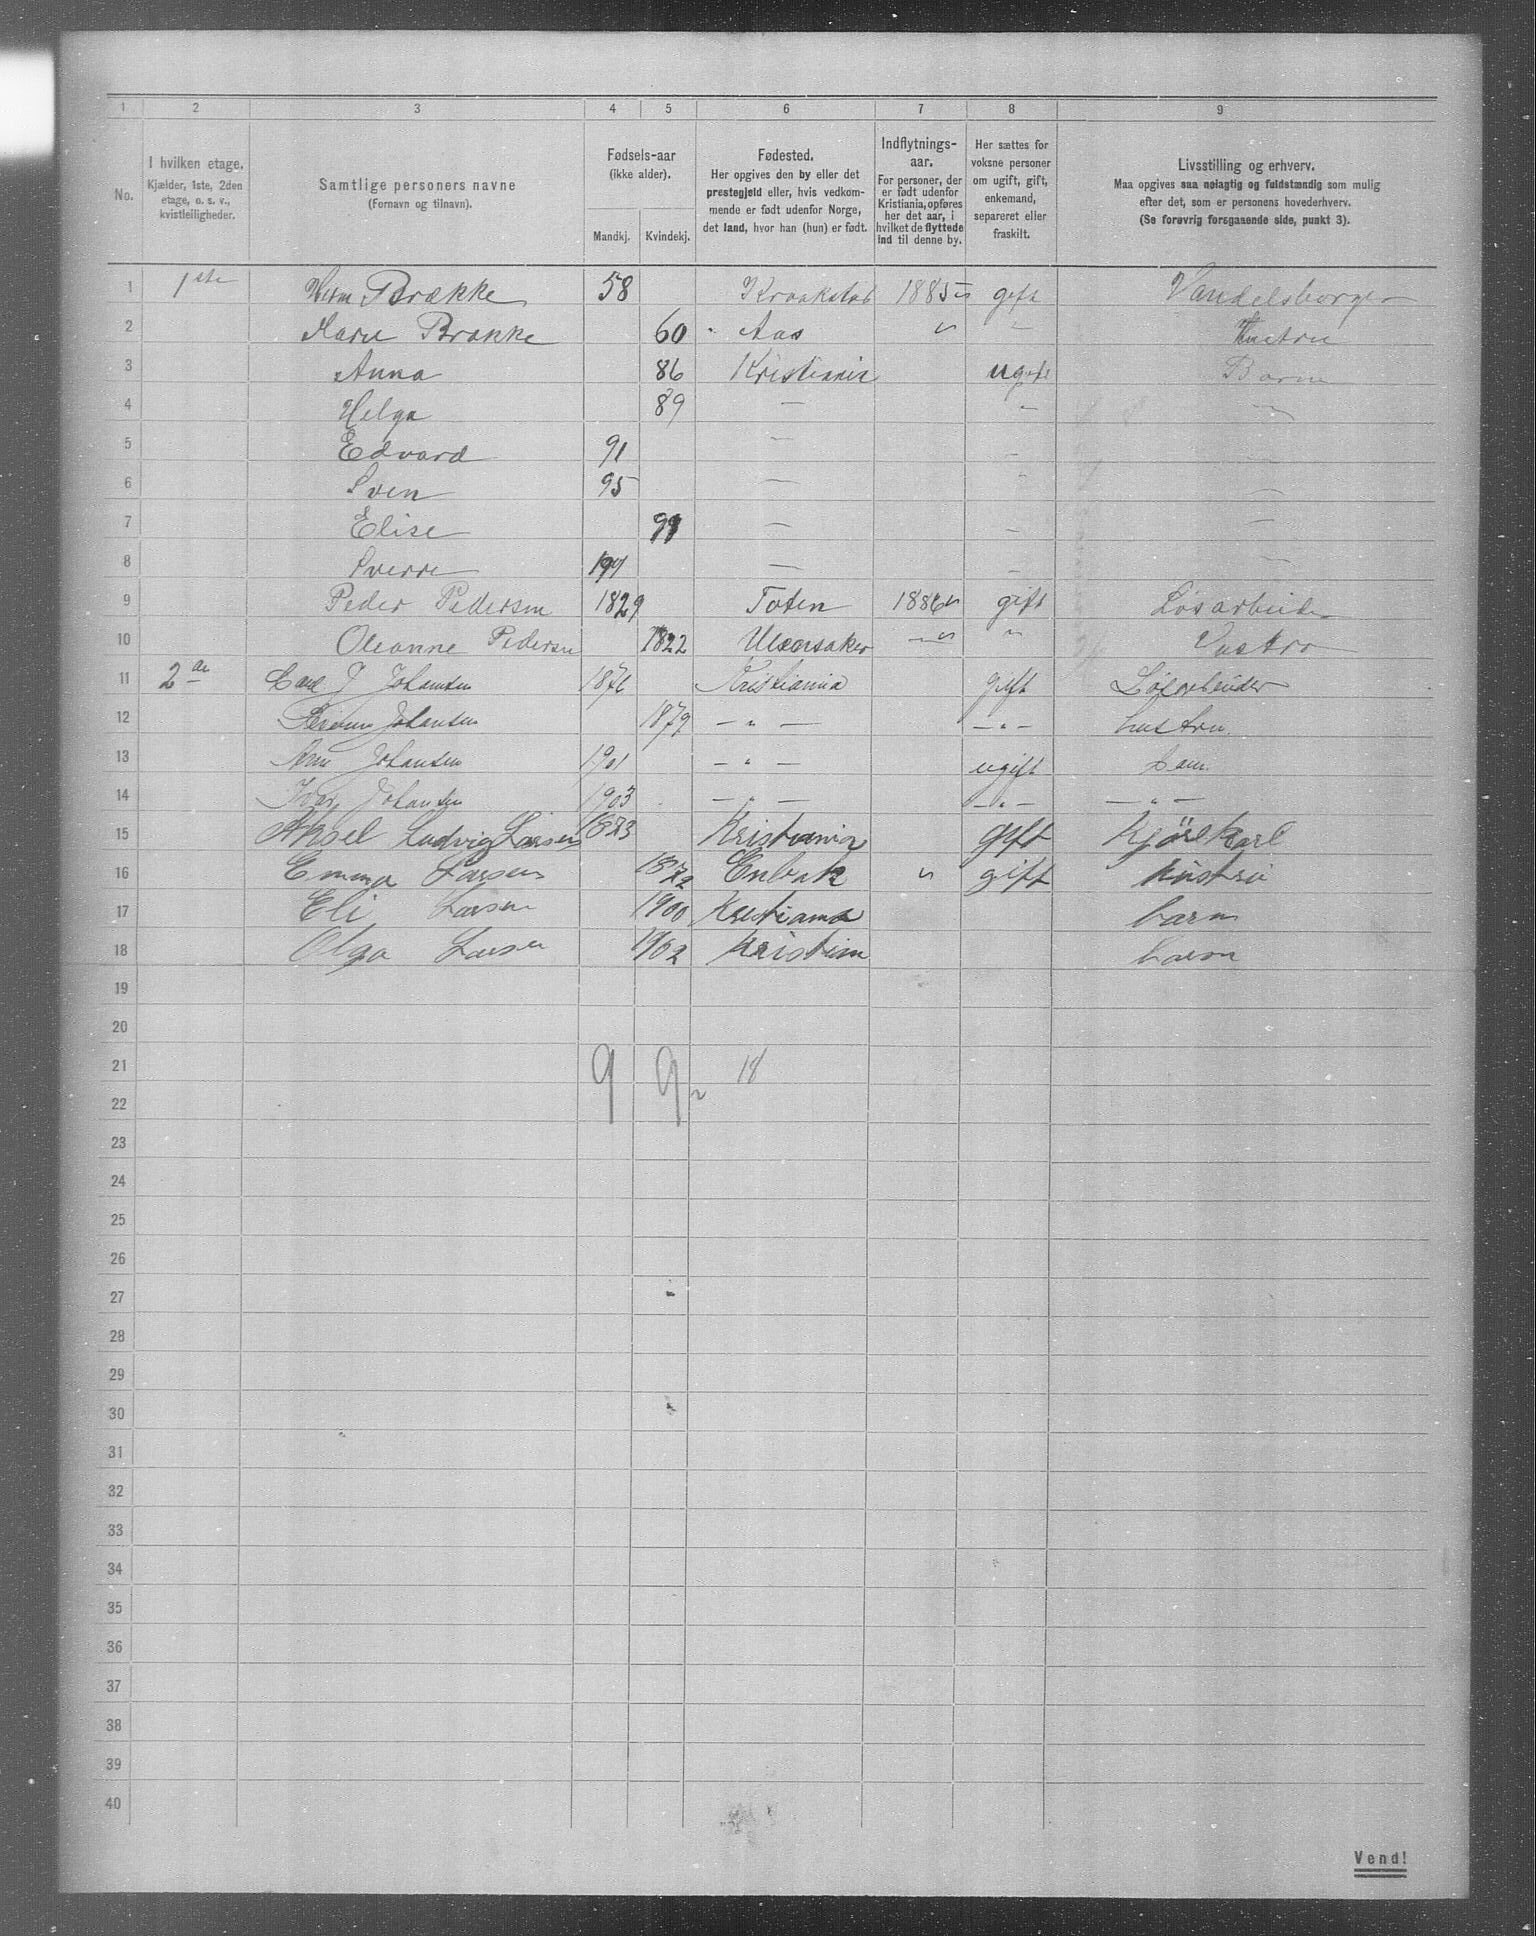 1 2 3 4 5 6 7 8 9
No.
I hvilken etage.
Kjælder, 1ste, 2den
etage, o. s. v.,
kvistleiligheder.
Samtlige personers navne
(Fornavn og tilnavn).
Fødsels-aar
(ikke alder).
Mandkj. Kvindekj.
Fødested.
Her opgives den by eller det
prestegjeld eller, hvis vedkom-
mende er født udenfor Norge,
det land, hvor han (hun) er født.
Indflytnings-
aar.
For personer, der
er født udenfor
Kristiania, opføres
her det aar, i
hvilket de flyttede
ind til denne by.
Her sættes for
voksne personer
om ugift, gift,
enkemand,
separeret eller
fraskilt.
Livsstilling og erhverv.
Maa opgives saa nøiagtig og fuldstændig som mulig
efter det, som er personens hovederhverv.
(Se forøvrig forsgaaende side, punkt 3).
1 1ste Brække 58 Kraakstad 1885 gift
2 Brække 60 Aas " Hustru
3 Anna 86 Kristiania ugift Barn
4 Helga 89 — " —
5 Edvard 91 — - —
6 Sven 95 — " —
7 Elise — - —
8 Sverre — - —
9 Peder Pedersen 1829 Toten 1886 gift Løsarbeider
10 Oleanne Pedersen 1822 Ullensaker — " Hustro
11 2de Carl J Johansen 1876 Kristiania gift Løsarbeider
12 Johansen 1879 — " — — " — hustru
13 Johansen 1901 — " — ugift barn
14 Ivar Johansen 1903 — " — — " — — " —
15 Aksel Ludvig Larsen 1873 Kristiania gift Kjørekarl
16 Emma Larsen 1872 Enbak gift hustru
17 Eli Larsen 1900 Kristiania barn
18 Olga Larsen 1902 Kristian barn
19
20
21 9 9 18
22
23
24
25
26
27
28
29
30
31
32
33
34
35
36
37
38
39
40
Vend!